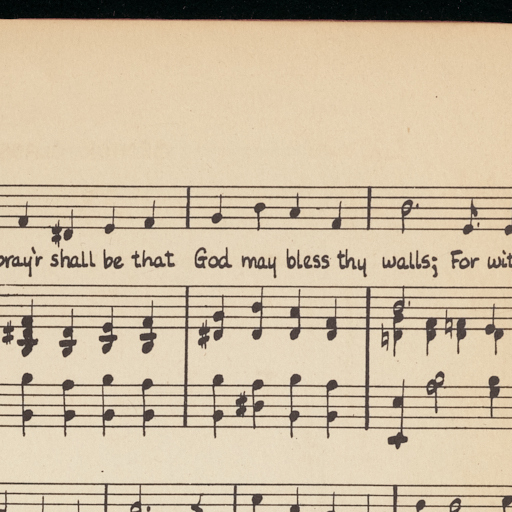 pray'r shall be that God may bless thy walls; For wit